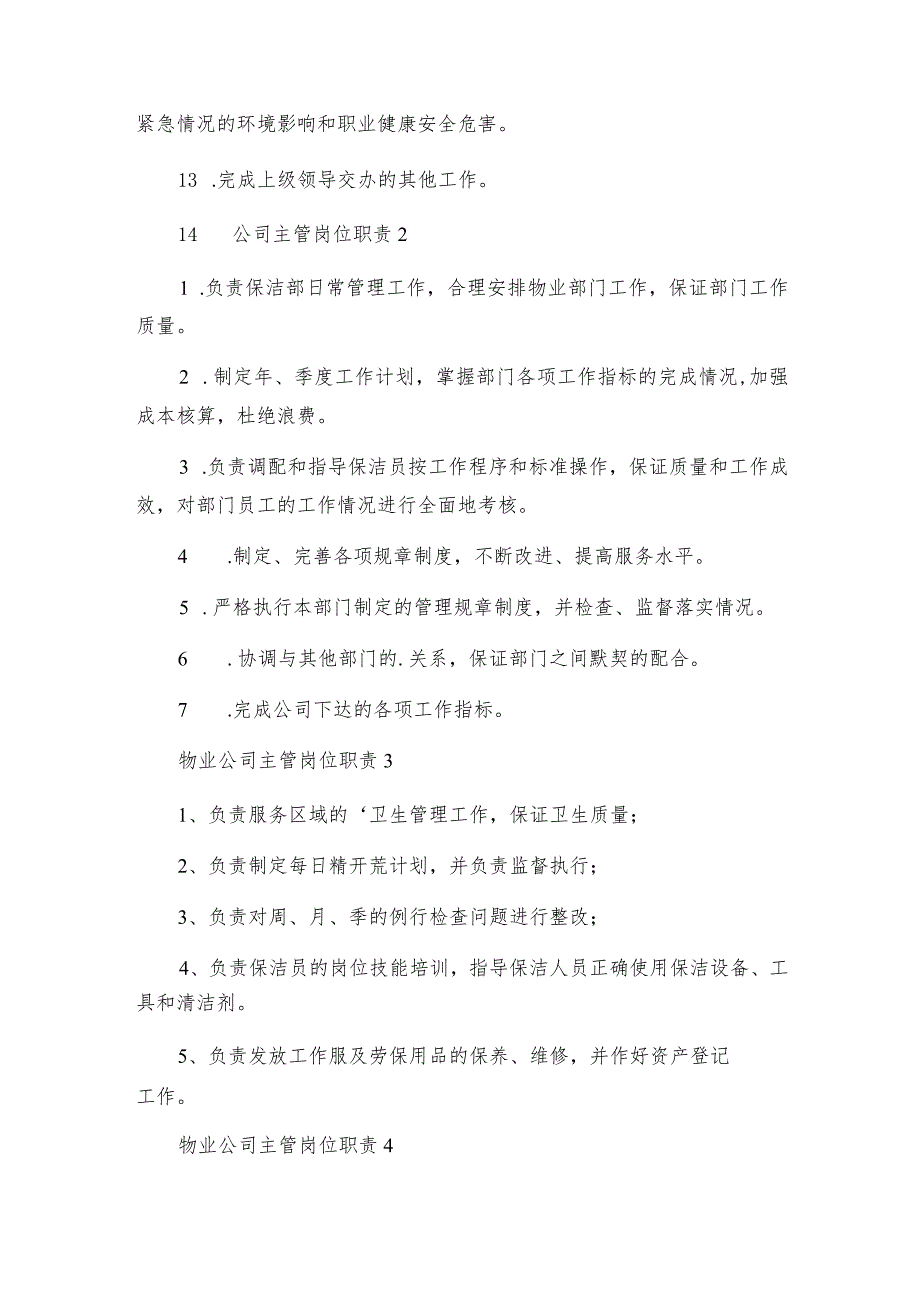 紧急情况的环境影响和职业健康安全危害。
13 .完成上级领导交办的其他工作。
14 公司主管岗位职责2
1 .负责保洁部日常管理工作，合理安排物业部门工作，保证部门工作
质量。
2 .制定年、季度工作计划，掌握部门各项工作指标的完成情况,加强
成本核算，杜绝浪费。
3 .负责调配和指导保洁员按工作程序和标准操作，保证质量和工作成
效，对部门员工的工作情况进行全面地考核。
4 .制定、完善各项规章制度，不断改进、提高服务水平。
5 .严格执行本部门制定的管理规章制度，并检查、监督落实情况。
6 .协调与其他部门的.关系，保证部门之间默契的配合。
7 .完成公司下达的各项工作指标。
物业公司主管岗位职责3
1、负责服务区域的‘卫生管理工作，保证卫生质量；
2、负责制定每日精开荒计划，并负责监督执行；
3、负责对周、月、季的例行检查问题进行整改；
4、负责保洁员的岗位技能培训，指导保洁人员正确使用保洁设备、工
具和清洁剂。
5、负责发放工作服及劳保用品的保养、维修，并作好资产登记
工作。
物业公司主管岗位职责4